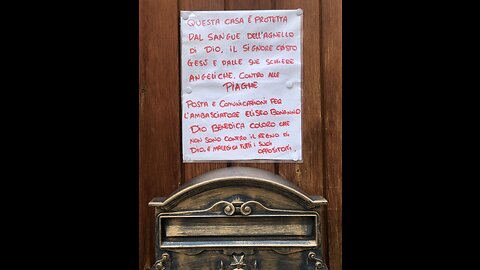 QUESTA CASA É PROTETTA
DAL SANGUE DELL'AGNELLO
DI DIO, IL SIGNORE CRISTO
GESÙ E DALLE SUE SCHIERE
ANGELICHE. CONTRO ALLE
PIAGHE
POSTA E COMUNICAZIONI PER
L'AMBASCIATORE ELISEO BONANNO
DIO BENEDICA COLORO CHE
NON SONO CONTRO IL REGNO DI
DIO, E MALEDICA TUTTI I SUOI
OPPOSITORI.